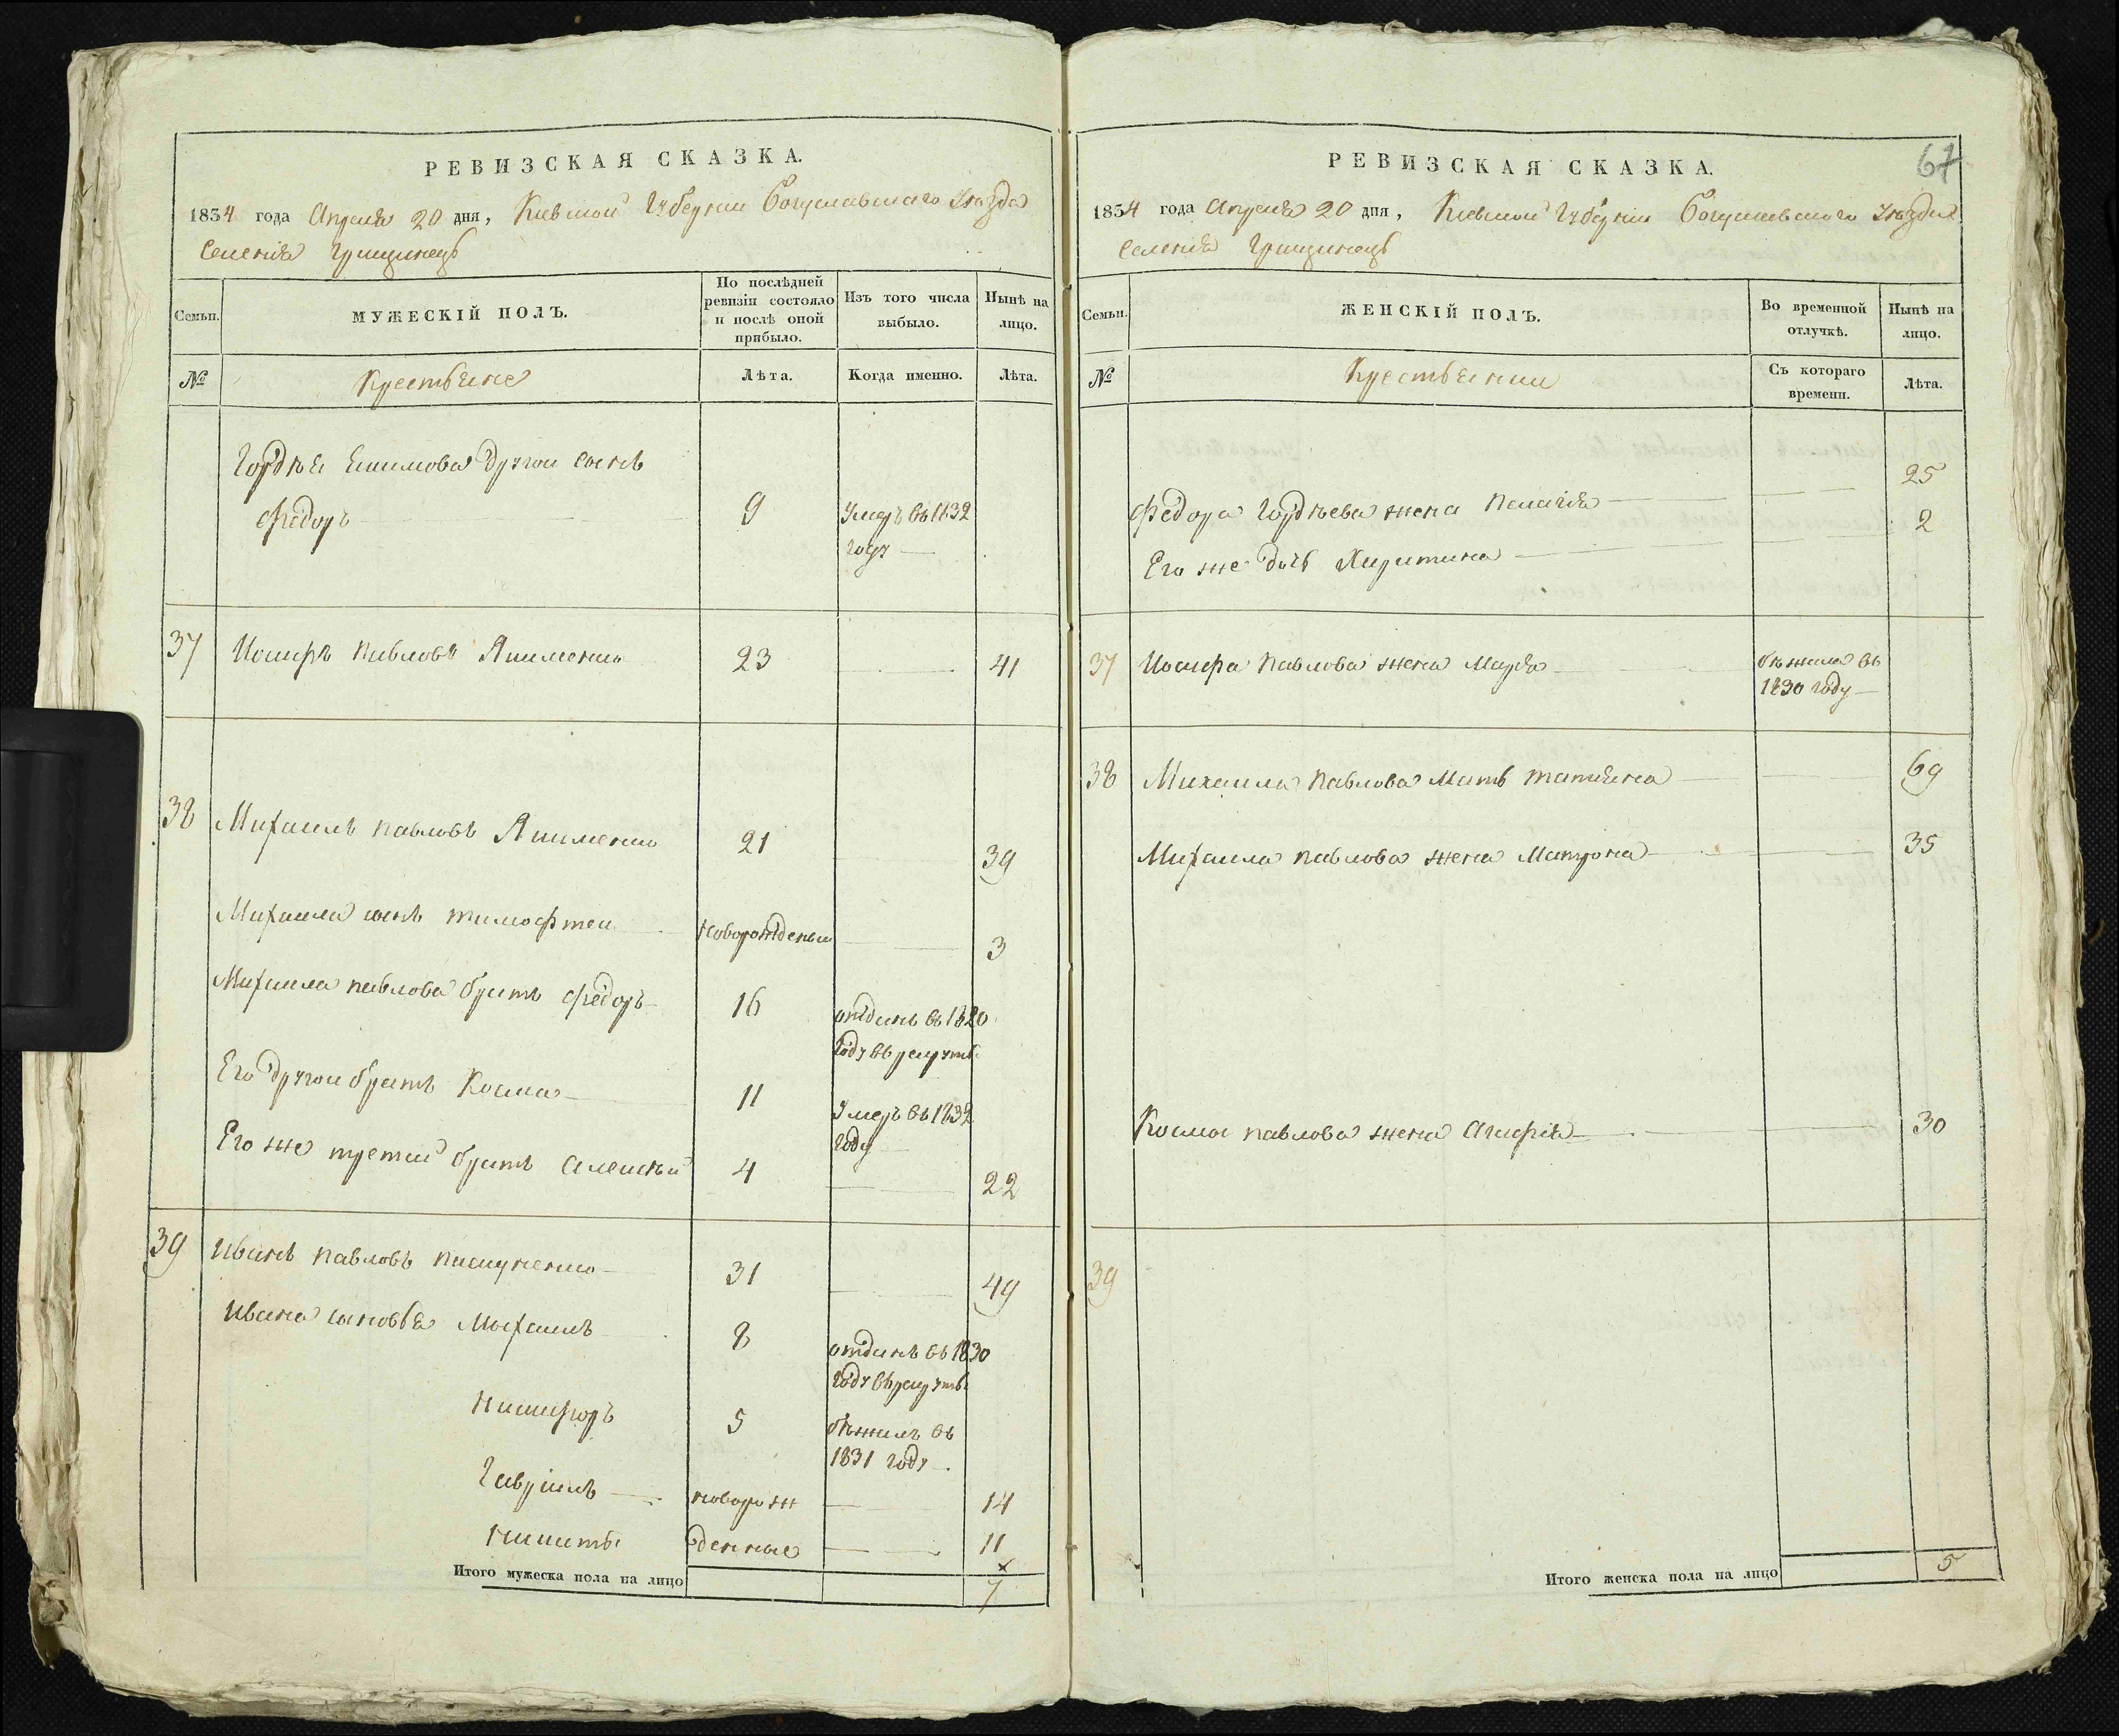 РЕВИЗСКАЯ СКАЗКА.
1834 года Апреля 20 дня, Киевской Губернии Богуславского Уезда
Селения Грищинецъ
Семьи.
МУЖЕСКІЙ ПОЛЪ.
По послѣдней
ревизіи состояло
и послѣ оной
прибыло.
Изъ того числа
выбыло.
Нынѣ на
лицо.
№
Крестьяне
Лѣта.
Когда именно.
Лѣта.
Гордѣя Екимова другои сынъ
Федоръ 9 Умеръ въ 1832
году
37 Иосифъ Павловъ Якименко 23 41
38 Михаилъ Павловъ Якименко 21 39
Михаила сынъ Тимофтеи новорожденыи 3
Михаила Павлова братъ Федоръ 16 отданъ въ 1820
году въ рекруты
Его другои братъ Косма 11 Умеръ въ 1832
году
Его же третии братъ Алексѣй 4 22
39 Иванъ Павловъ 31 49
Ивана сыновья Михаилъ 8 отданъ въ 1830
году въ рекруты
Никифоръ 5 бѣжалъ въ
1831 году
Гаврiилъ новорож 14
Никита денные 11
Итого мужеска пола на лицо 7
67
РЕВИЗСКАЯ СКАЗКА.
1834 года Апреля 20 дня, Киевской Губернии Богуславского Уезда
Селения Грищинецъ
Семьи.
ЖЕНСКІЙ ПОЛЪ.
Во временной
отлучкѣ.
Нынѣ на
лицо.
№
Крестьянки
Съ котораго
времени.
Лѣта.
Федора Гордѣева жена Пелагія 25
Его же дочь Харитина 2
37 Иосифа Павлова жена Марья бѣжала въ
1830 году
38 Михаила Павлова Мать Татьяна 69
Михаила Павлова жена Матрона 35
Космы Павлова жена Агафія 30
39
Итого женска пола на лицо 5